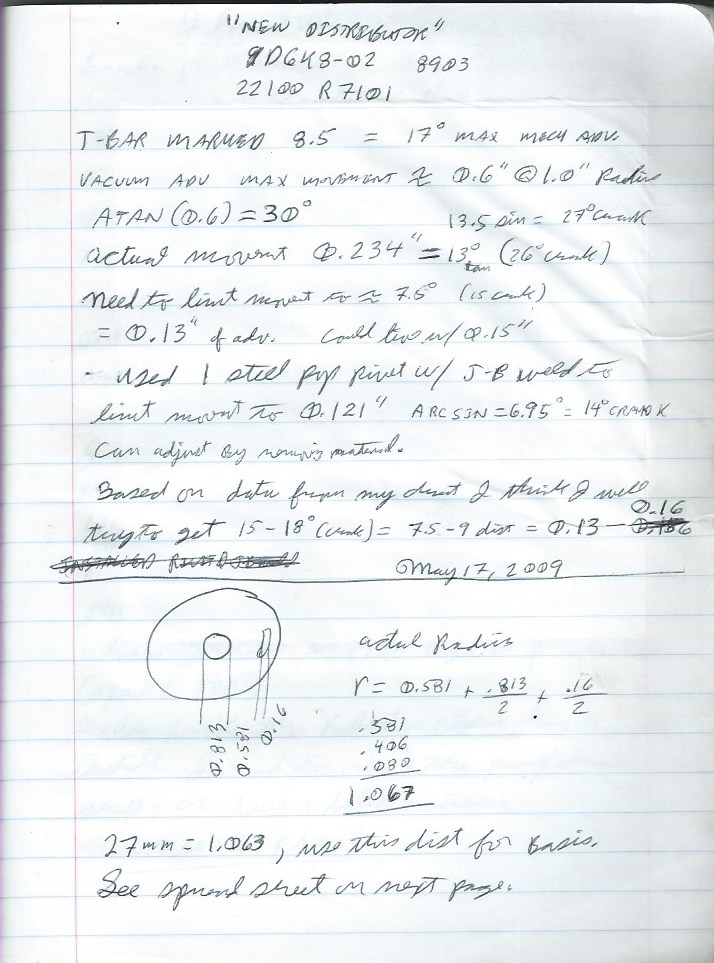 "NEW DISTRIBUTOR"
D6K8-02 8903
22100 R7101
T-BAR MARKED 8.5 = 17° MAX MECH ADV.
VACUUM ADV MAX MOVEMENT ≈ 0.6" @ 1.0" Radius
ATAN(0.6) = 30°
13.5 sin = 27° crank
actual movemt 0.234" = 13° tan (26° crank)
Need to limit movemt to ≈ 7.5° (15 crank)
= 0.13" of adv. Could live w/ 0.15"
- used 1 steel pop rivet w/ J-B weld to
limit movmt to 0.121" ARCSIN = 6.95° = 14° CRANK
Can adjust By removing material.
Based on data from my dist I think I will
try to get 15-18° (crank) = 7.5-9 dist = 0.13 - 0.16
May 17, 2009
0.813
0.581
0.16
actual Radius
r = 0.581 + .813/2 + .16/2
.581
.406
.080
1.067
27mm = 1.063, use this dist for Basis.
See spread sheet on next page.